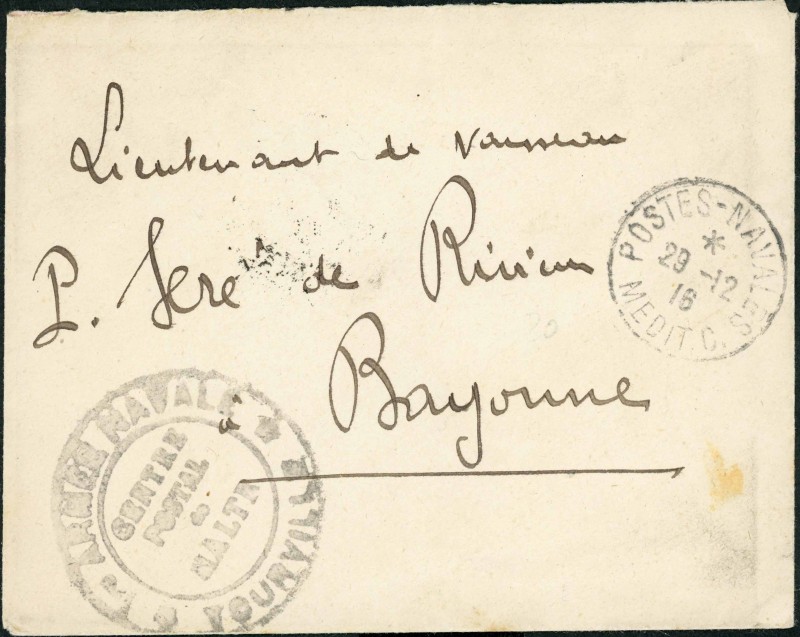 Lieutenant de vaisseau
P. Sere de Rivières
à Bayonne
POSTES-NAVALES
*
29 -12
16
MEDIT. C.
ARMEE NAVALE
CENTRE
POSTAL
de
MALTE
TOURVILLE